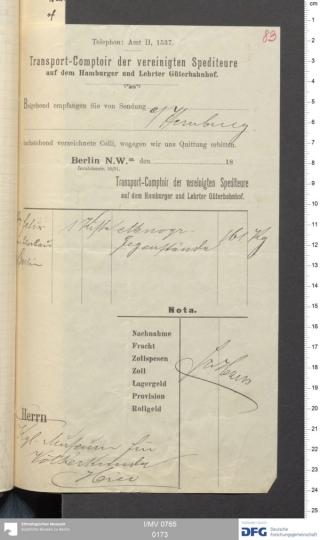 of
83
Telephon: Amt II, 1537.
Transport-Comptoir der vereinigten Spediteure
auf dem Hamburger und Lehrter Güterbahnhof.
Beigehend empfangen Sie von Sendung
a/ Hamburg
nachstehend verzeichnete Colli, wogegen wir uns Quittung erbitten.
Berlin N.W. den 18
Transport-Comptoir der vereinigten Spediteure
auf dem Hamburger und Lehrter Güterbahnhof.
1 Kiste ethnogr. 161 Kg
Gegenstände
Berlin
Nota.
Nachnahme
Fracht
Zollspesen
Zoll
Lagergeld
Provision
Rollgeld
Herrn
Kgl. Museum für
Völkerkunde
Hier
Ethnologisches Museum
Staatliche Museen zu Berlin
I/MV 0765
0173
DFG
Gefördert durch
Deutsche
Forschungsgemeinschaft